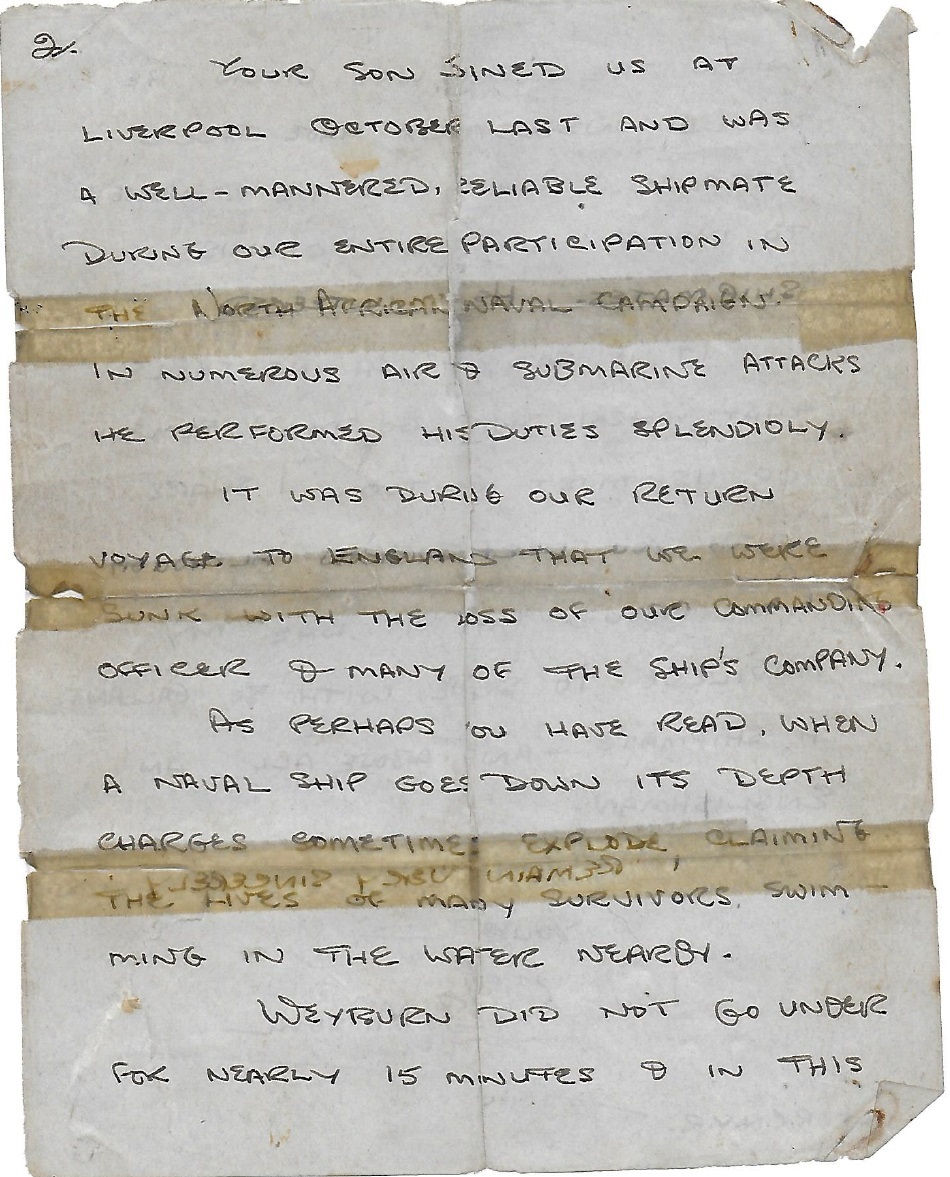 2.
YOUR SON JOINED US AT
LIVERPOOL OCTOBER LAST AND WAS
A WELL-MANNERED, RELIABLE SHIPMATE
DURING OUR ENTIRE PARTICIPATION IN
THE NORTH AFRICAN NAVAL CAMPAIGN.
IN NUMEROUS AIR & SUBMARINE ATTACKS
HE PERFORMED HIS DUTIES SPLENDIDLY.
IT WAS DURING OUR RETURN
VOYAGE TO ENGLAND THAT WE WERE
SUNK WITH THE LOSS OF OUR COMMANDING
OFFICER & MANY OF THE SHIP'S COMPANY.
AS PERHAPS YOU HAVE READ, WHEN
A NAVAL SHIP GOES DOWN ITS DEPTH
CHARGES SOMETIMES EXPLODE CLAIMING
THE LIVES OF MANY SURVIVORS, SWIM-
MING IN THE WATER NEARBY.
WEYBURN DID NOT GO UNDER
FOR NEARLY 15 MINUTES & IN THIS